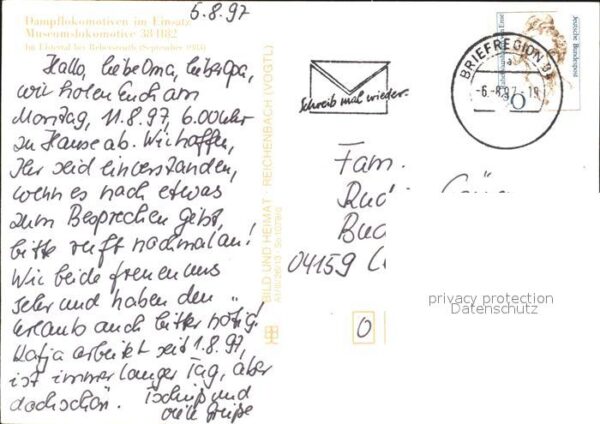 5.8.97
Dampflokomotiven im Einsatz
Museumslokomotive 38 1182
Im Elstertal bei Rebersreuth (September 1984)
Hallo, liebe Oma, lieber Opa,
wir holen Euch am
Montag, 11.8.97, 6.00 Uhr
zu Hause ab. Wir hoffen,
Ihr seid einverstanden,
wenn es noch etwas
zum Besprechen gibt,
bitte ruft nochmal an!
Wir beide freuen uns
sehr und haben den
Urlaub auch bitter nötig!
Katja arbeitet seit 1.8.97,
ist immer langer Tag, aber
doch schön. Tschüß und
viele Grüße
BILD UND HEIMAT REICHENBACH (VOGTL)
Schreib mal wieder.
BRIEFREGION 04
a
-6.-8.97.-19
Deutsche Bundespost
Fam.
04159
0
privacy protection
Datenschutz